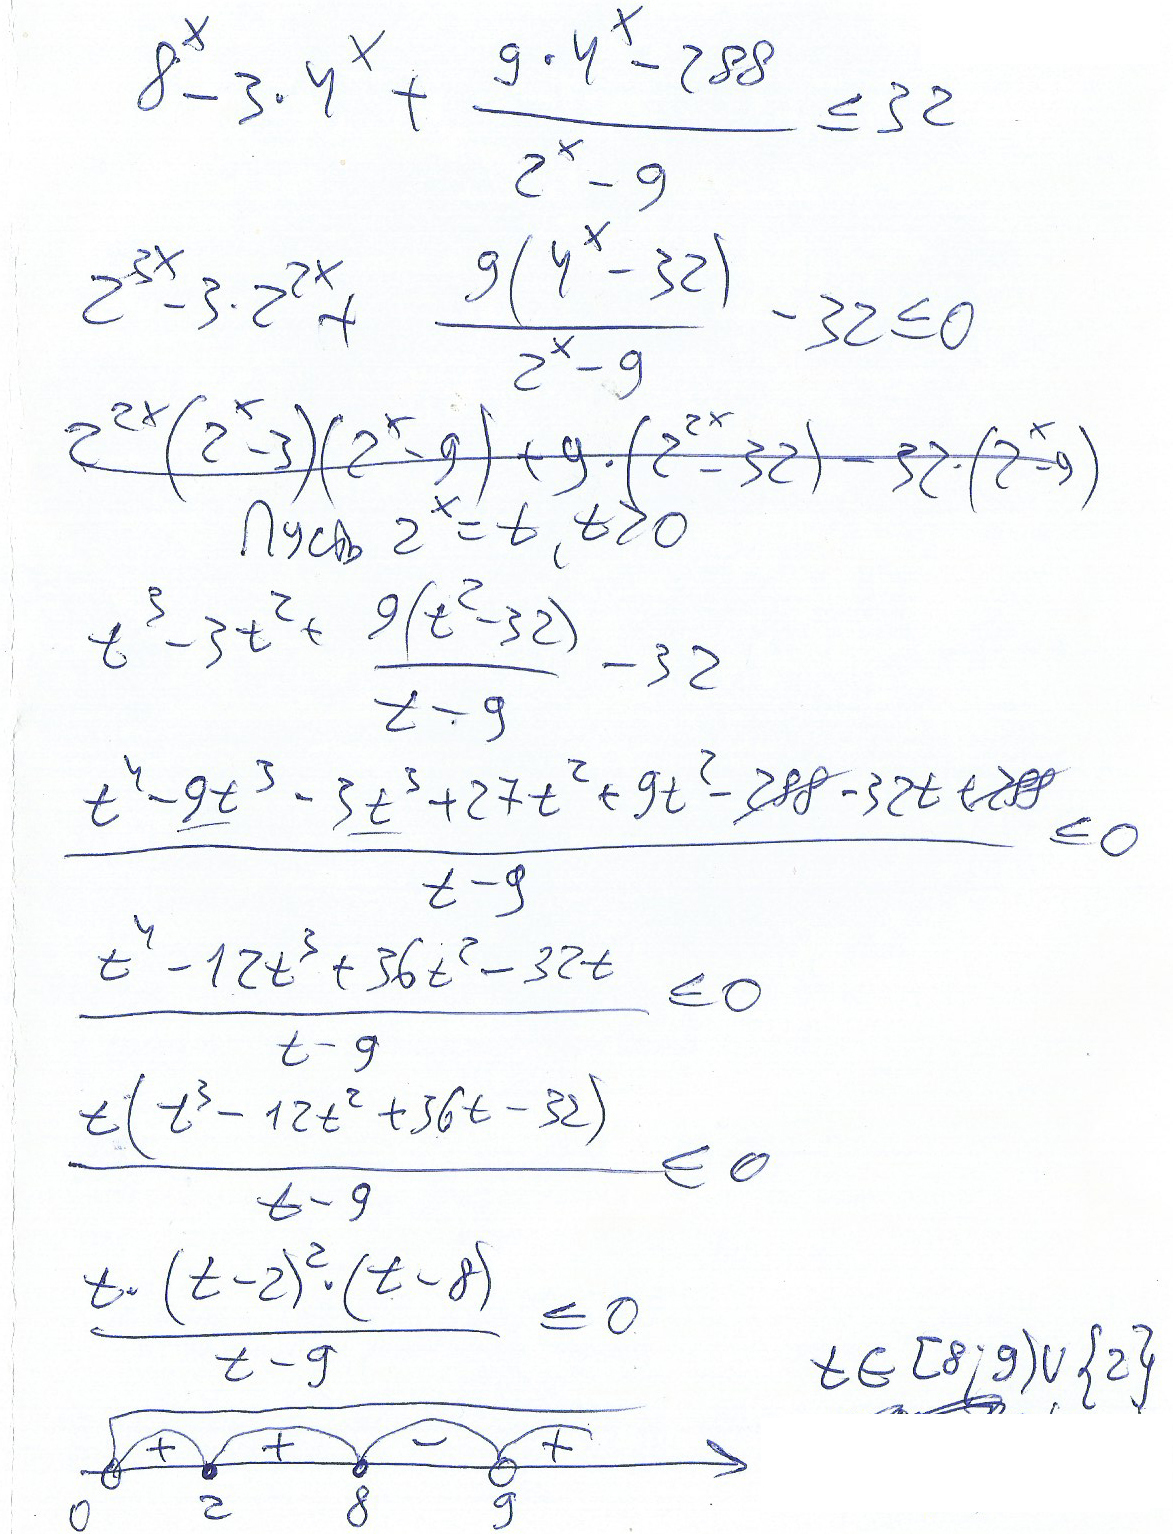 8^x - 3·4^x + (9·4^x - 288)/(2^x - 9) ≤ 32
2^{3x} - 3·2^{2x} + 9(4^x - 32)/(2^x - 9) - 32 ≤ 0
2^{2x}(2^x - 3)(2^x - 9) + 9·(2^{2x} - 32) - 32·(2^x - 9)
Пусть 2^x = t, t > 0
t^3 - 3t^2 + 9(t^2 - 32)/(t - 9) - 32
(t^4 - 9t^3 - 3t^3 + 27t^2 + 9t^2 - 288 - 32t + 288)/(t - 9) ≤ 0
(t^4 - 12t^3 + 36t^2 - 32t)/(t - 9) ≤ 0
t(t^3 - 12t^2 + 36t - 32)/(t - 9) ≤ 0
t·(t - 2)^2·(t - 8)/(t - 9) ≤ 0
t ∈ [8; 9) ∪ {2}
+ + - +
0 2 8 9